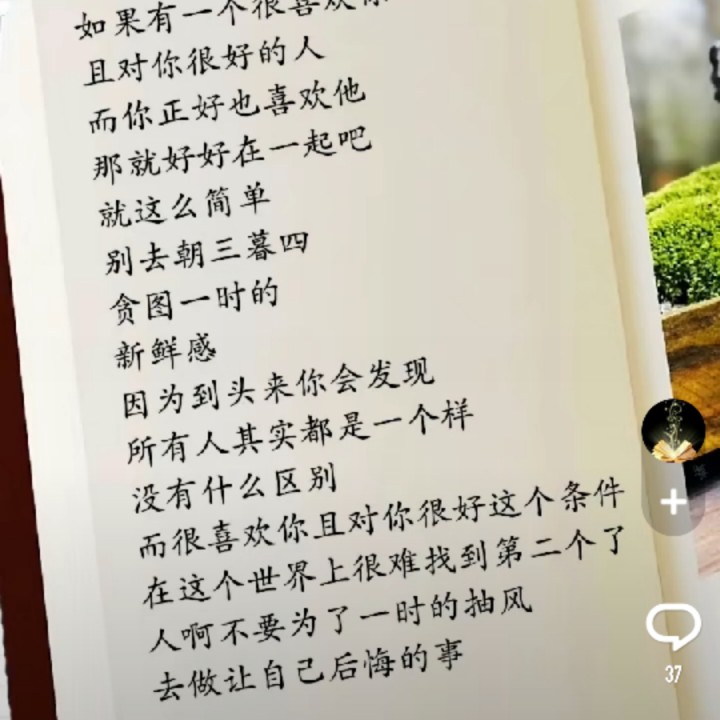 如果有一个很喜欢你
且对你很好的人
而你正好也喜欢他
那就好好在一起吧
就这么简单
别去朝三暮四
贪图一时的
新鲜感
因为到头来你会发现
所有人其实都是一个样
没有什么区别
而很喜欢你且对你很好这个条件
在这个世界上很难找到第二个了
人啊不要为了一时的抽风
去做让自己后悔的事
37